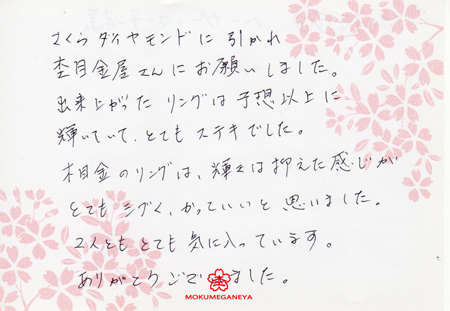 さくらダイヤモンドに引かれ
杢目金屋さんにお願いしました。
出来上がった リングは予想以上に
輝いていて、とても ステキでした。
木目金のリングは、輝きは抑えた感じが
とても シブく、かっていいと思いました。
2人とも とても 気に入っています。
ありがとうございました。
MOKUMEGANEYA